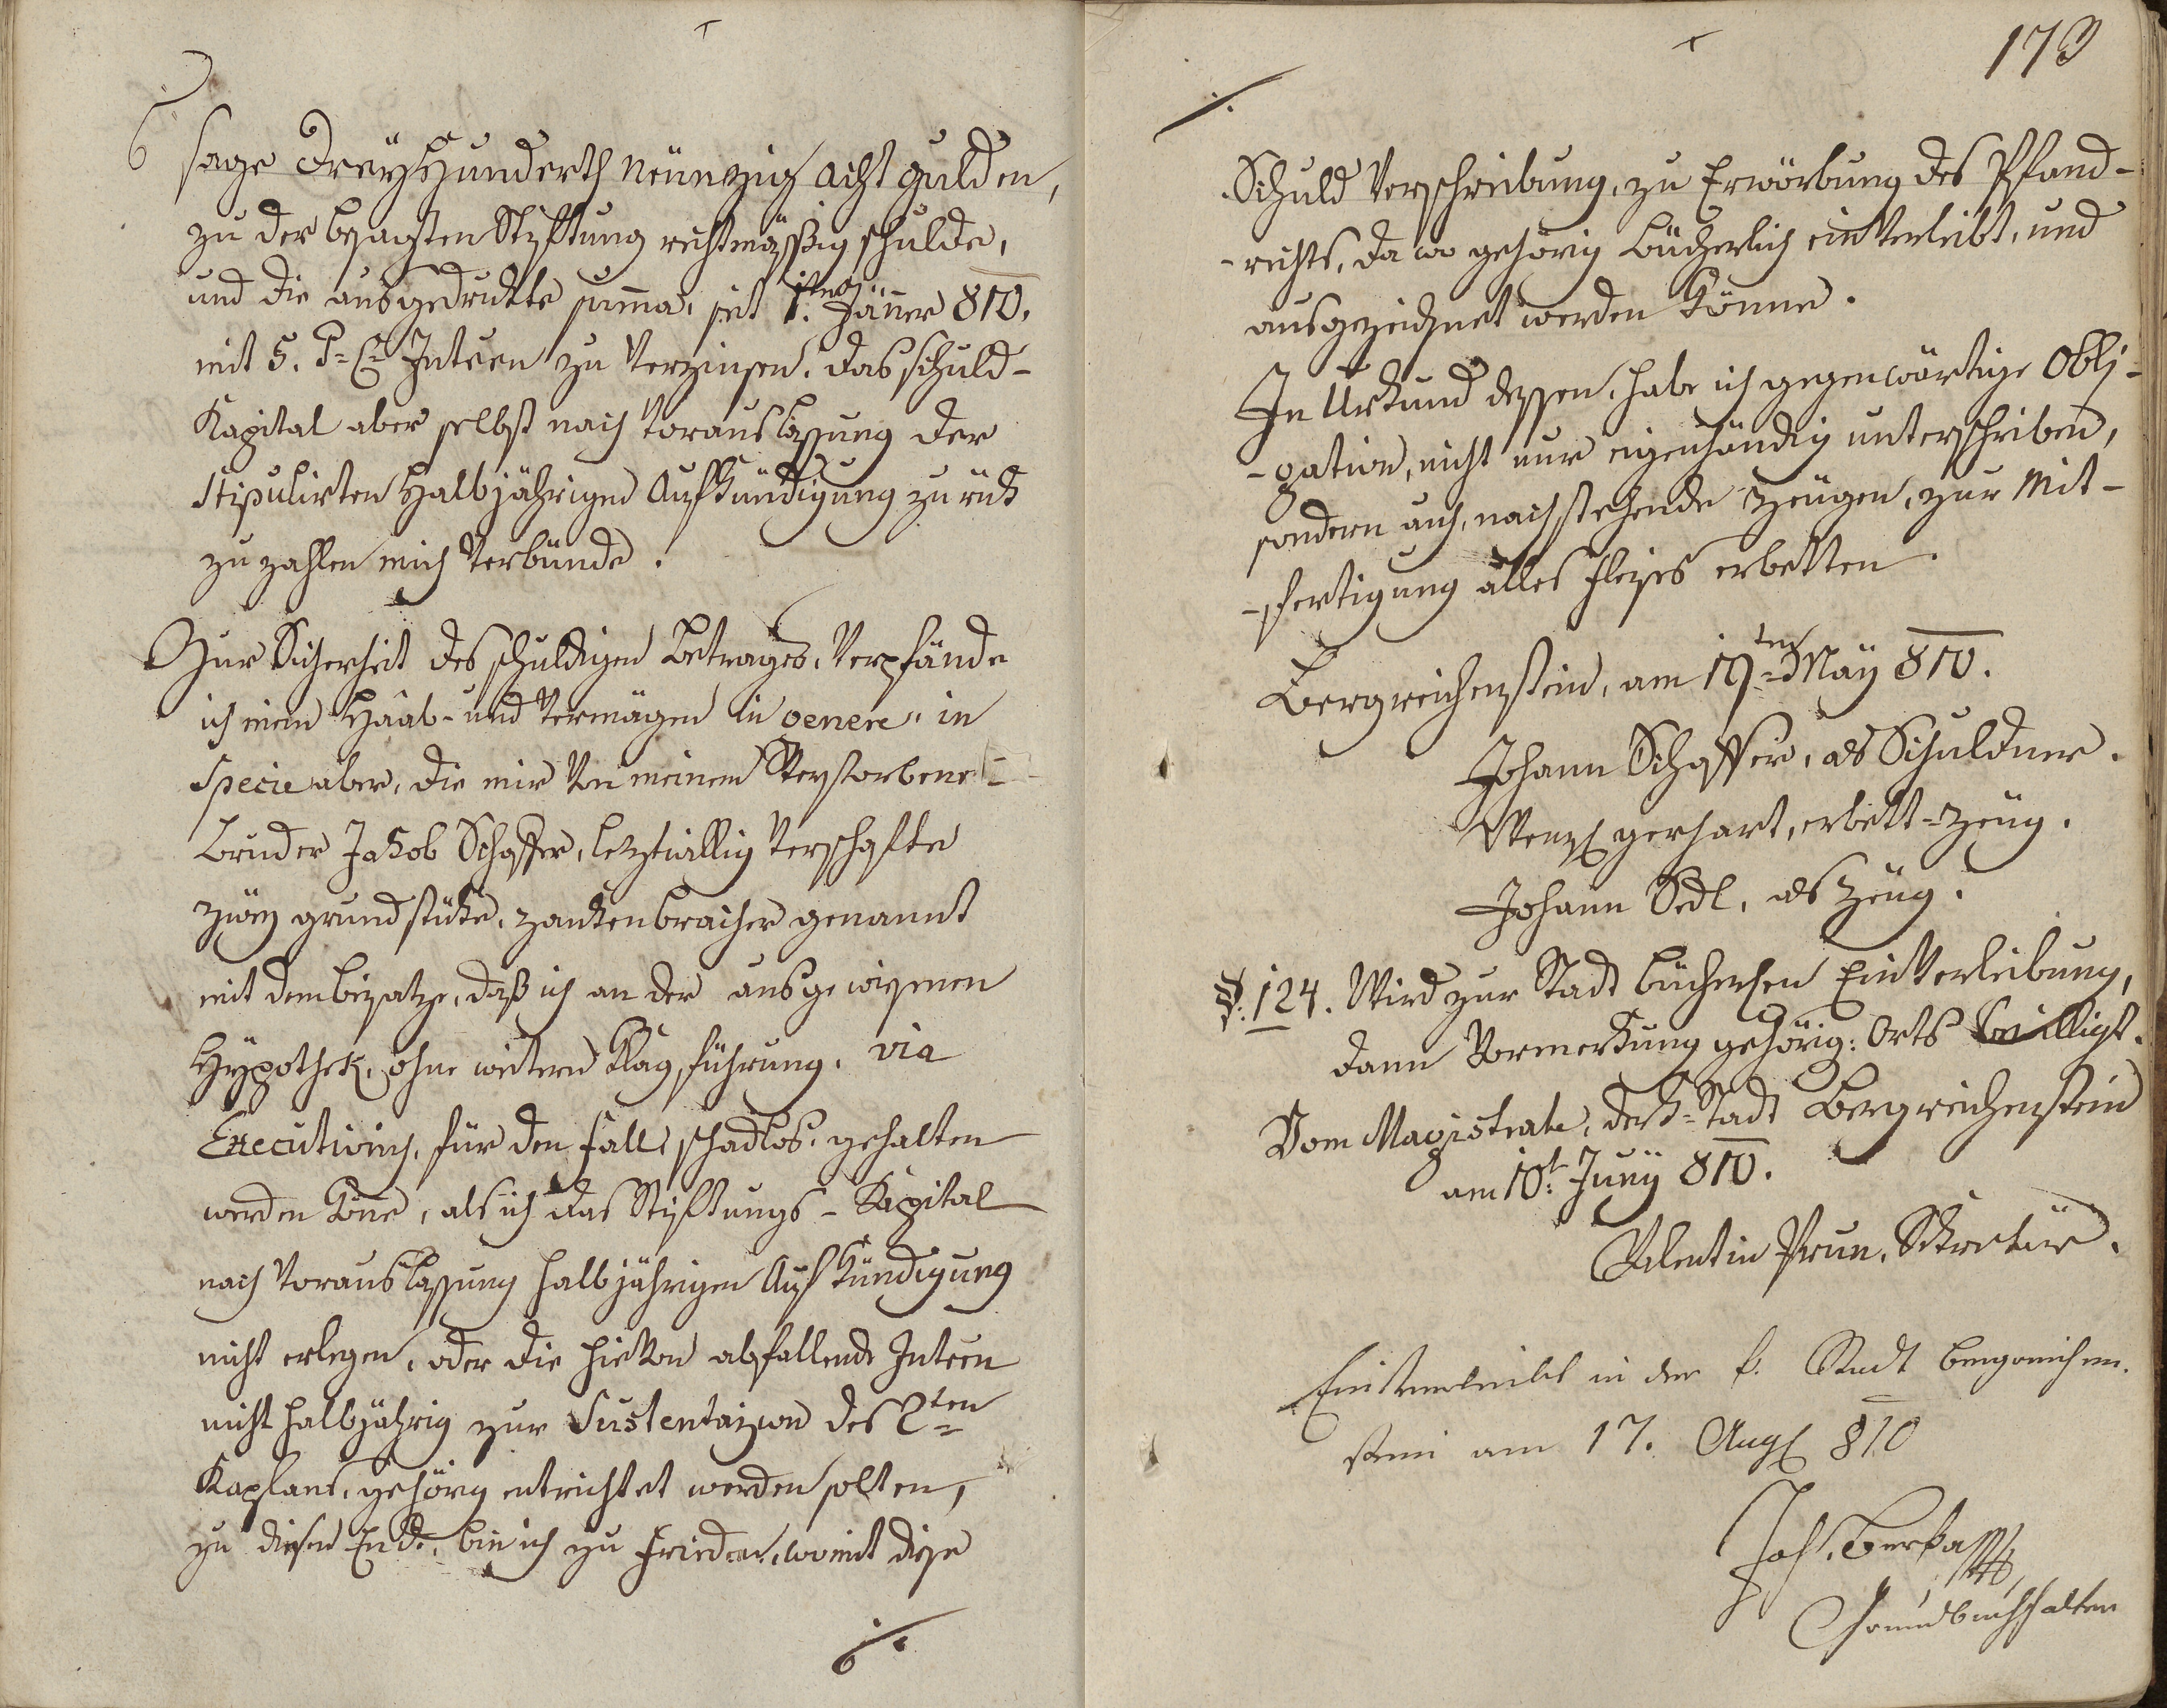 sage Dreÿhunderth Neünzig acht gulden,
zu der besagten Styftung rechtmässig schulde,
und die ausgedrukte suma, seit 1ten Jäner 810.
mit 5. P: Ct Intssen zu Verzinsen, das schuld-
Kapital aber selbst nach Vorauslassung der
stipulirten Halbjährigen Aufkündigung zurük
zu zahlen mich Verbünde.
Zur Sicherheit des schuldigen Betrages, Verpfände
ich mein Haab- und Vermögen in genere, in
Specie aber, die mir Von meinem Verstorbene
Bruder Jakob Schaffer, leztwillig Verschafte
zweÿ grundstüke, genannt
mit dem beÿsatze, daß ich an der ausgewisenen
Hÿpothek, ohne weitern Klagsführung, via
Executionis, für den fall schadlos, gehalten
werden köne, als ich das Styftungs-Kapital
nach Vorauslassung halbjährigen Aufkündigung
nicht erlegen, oder die hieVon abfallende Intssen
nicht halbjährig zur Sustentazion des 2ten
Kaplans, gehörig entrichtet werden solten,
zu diesen Ende, bin ich zu frieden, womit diese
173
Schuld Verschreibung, zu Erwörbung des Pfand-
-rechts, da wo gehörig bücherlich einVerleibt, und
ausgezeichnet werden könne.
In Urkund dessen, habe ich gegenwärtige Obli-
-gation, nicht nur eigenhändig unterschriben,
sondern auch, nachstehende Zeügen, zur Mit-
-fertigung alles fleises erbetten.
Bergreichenstein, am 19ten Maÿ 810.
Johann Schaffer, als Schuldner.
Wenzl gerhart, erbett-Zeüg.
Johann Sedl, als Zeüg.
§. 124. Wird zur Stadt büchersen EinVerleibung,
dann Vormerkung gehörig: Orts bewilligt.
Vom Magistrate, der k: Stadt Bergreichenstein
am 10t Junÿ 810.
Valentin Prun, Sekretär.
Einverleibt in der k. Stadt bergreichen-
stein am 17. Augs 810
Joh. Berka
Grundbuchshalter